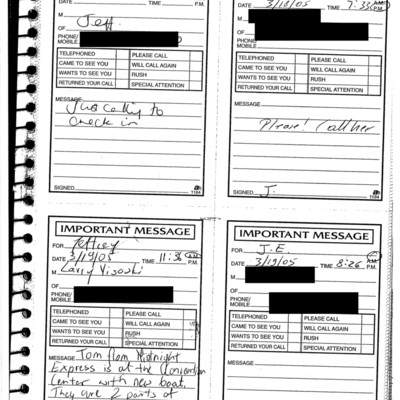 DATE TIME P.M.
M Jeff
OF
PHONE/
MOBILE
TELEPHONED PLEASE CALL
CAME TO SEE YOU WILL CALL AGAIN
WANTS TO SEE YOU RUSH
RETURNED YOUR CALL SPECIAL ATTENTION
MESSAGE
Just calling to
check in
SIGNED 1184
DATE 3/18/05 TIME 7:33 P.M.
M
OF
PHONE/
MOBILE
TELEPHONED PLEASE CALL
CAME TO SEE YOU WILL CALL AGAIN
WANTS TO SEE YOU RUSH
RETURNED YOUR CALL SPECIAL ATTENTION
MESSAGE
Please! Call her
SIGNED J. 1184
IMPORTANT MESSAGE
FOR Jeffrey
DATE 3/19/05 TIME 11:36 A.M. P.M.
M Larry Visoski
OF
PHONE/
MOBILE
TELEPHONED PLEASE CALL
CAME TO SEE YOU WILL CALL AGAIN
WANTS TO SEE YOU RUSH
RETURNED YOUR CALL SPECIAL ATTENTION
MESSAGE Tom from Midnight
Express is at the Convention
Center with new boat.
They are 2 parts of
IMPORTANT MESSAGE
FOR J.E
DATE 3/19/05 TIME 8:26 A.M. P.M.
M
OF
PHONE/
MOBILE
TELEPHONED PLEASE CALL
CAME TO SEE YOU WILL CALL AGAIN
WANTS TO SEE YOU RUSH
RETURNED YOUR CALL SPECIAL ATTENTION
MESSAGE